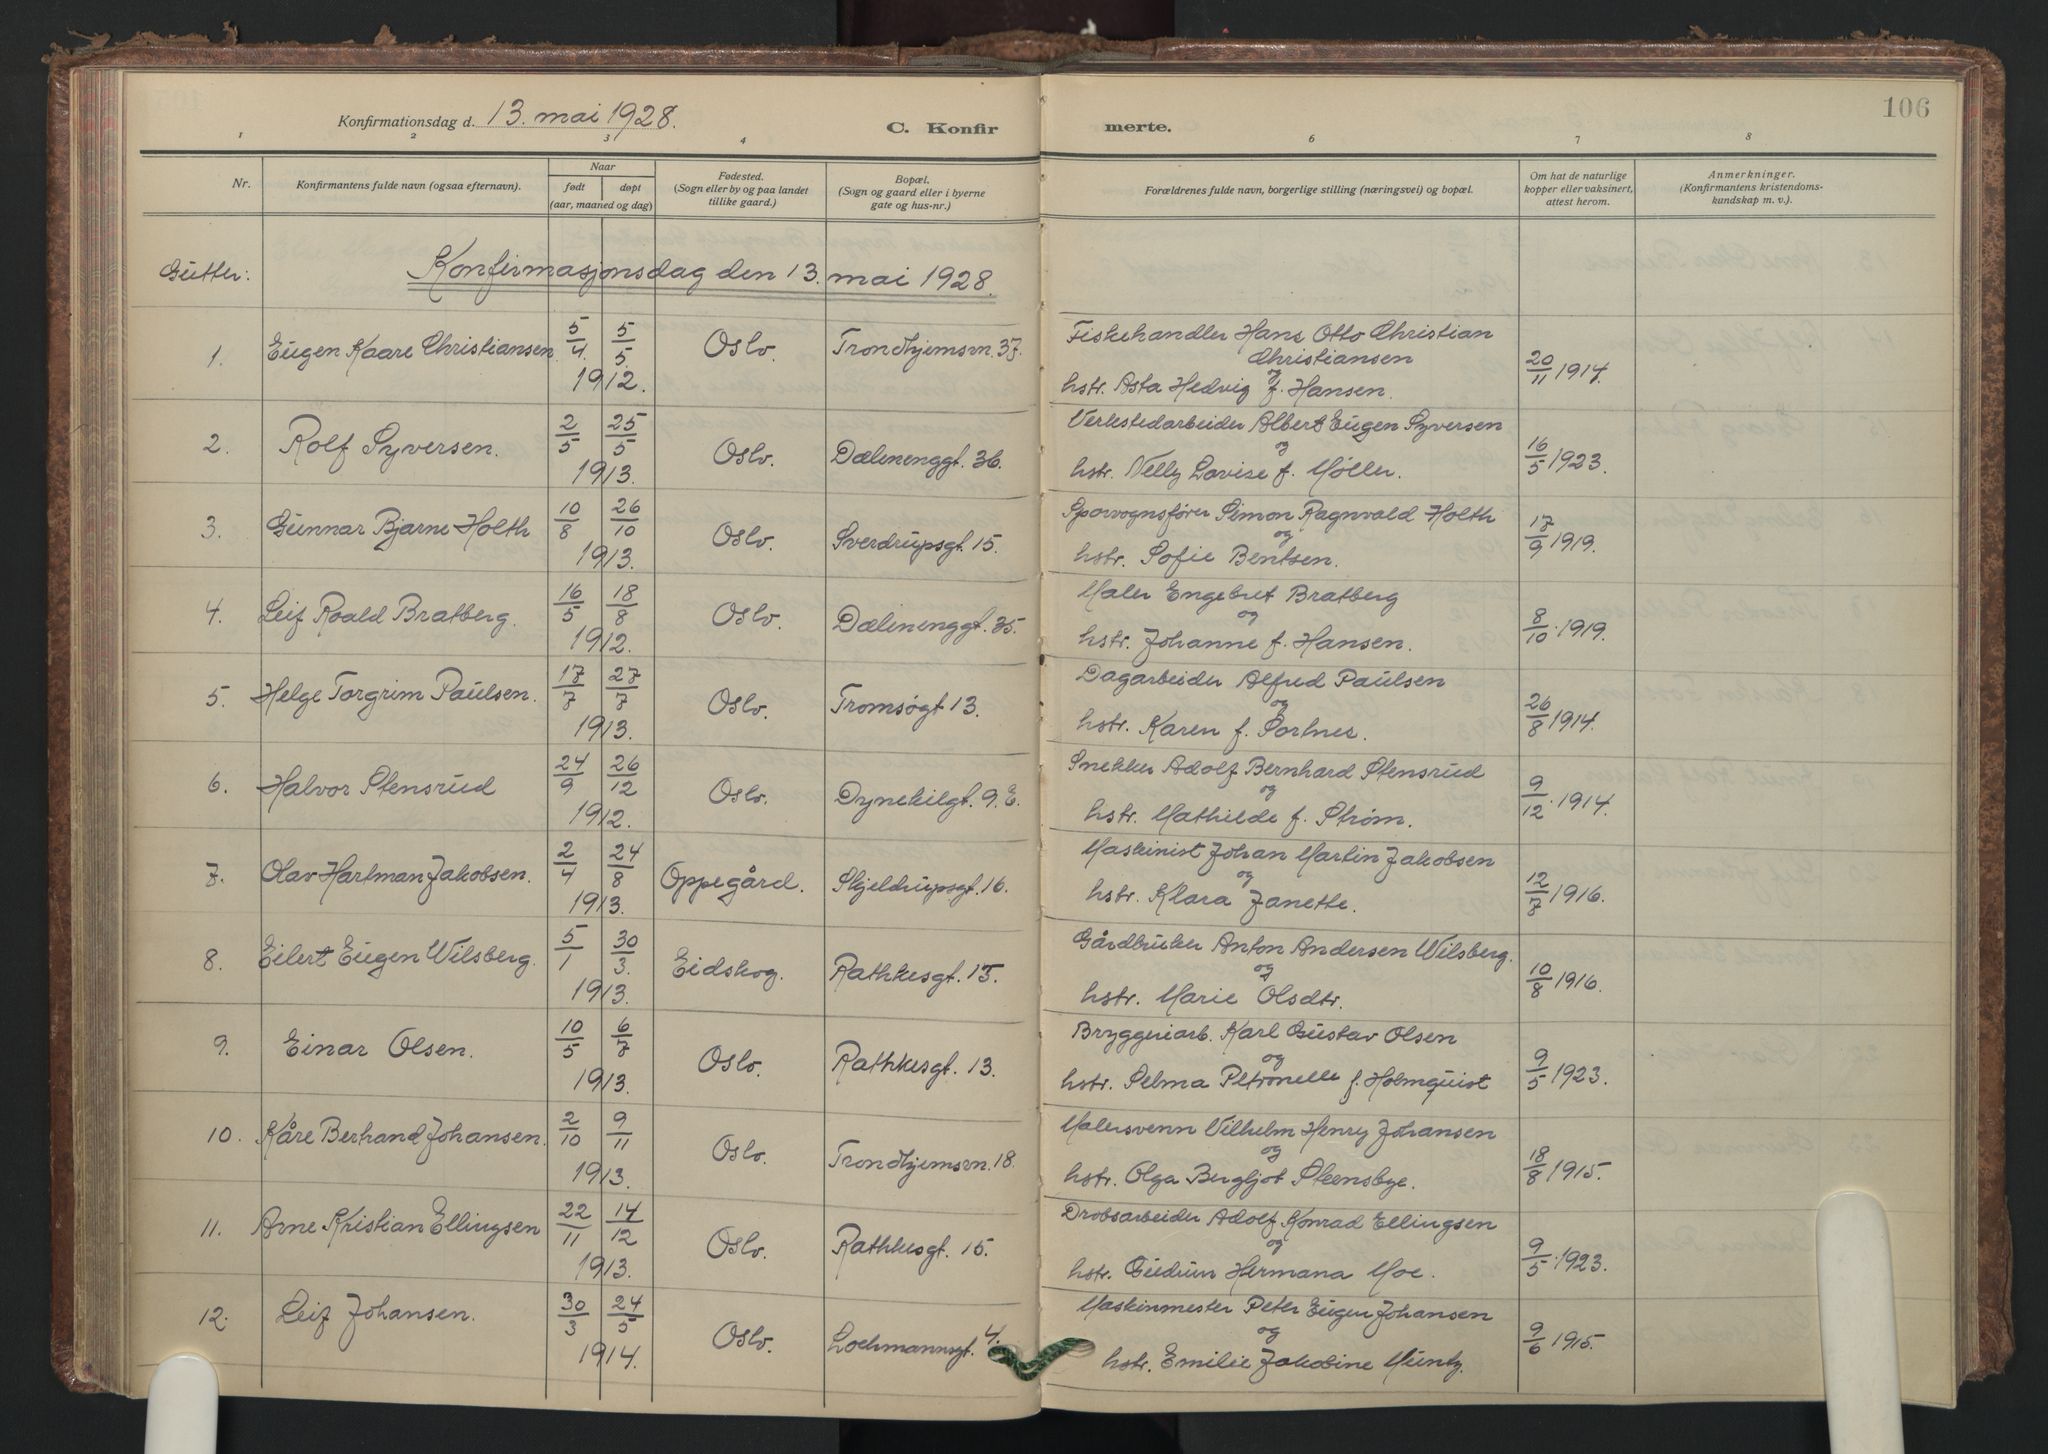 Konfirmationsdag d. 13. mai 1928.
C. Konfir merte.
106
1 2 3 4 6 7 8
Nr.
Konfirmantens fulde navn (ogsaa efternavn).
Naar
født døpt
(aar, maaned og dag)
Fødested.
(Sogn eller by og paa landet
tillike gaard.)
Bopæl.
(Sogn og gaard eller i byerne
gate og hus-nr.)
Forældrenes fulde navn, borgerlige stilling (næringsvei) og bopæl.
Om hat de naturlige
kopper eller vaksinert,
attest herom.
Anmerkninger.
(Konfirmantens kristendoms-
kundskap m. v.).
Gutter: Konfirmasjonsdag den 13. mai 1928.
1. Eugen Kaare Christiansen 5/4 5/5 1912. Oslo. Trondhjemsvn. 37.
Fiskehandler Hans Otto Christian
Christiansen
og
hstr. Asta Hedvig f. Hansen.
20/11 1914.
2. Rolf Syversen. 2/5 25/5 1913. Oslo. Dælenenggt. 36.
Verkstedarbeider Albert Eugen Syversen
og
hstr. Nelly Lovise f. Møller.
16/5 1923.
3. Gunnar Bjarne Holth 10/8 26/10 1913. Oslo. Sverdrupsgt. 15.
Sporvognsfører Simon Ragnvald Holth
og
hstr. Sofie Bentsen.
17/9 1919.
4. Leif Roald Bratberg. 16/5 18/8 1912. Oslo. Dælenenggt. 35.
Maler Engebret Bratberg
og
hstr. Johanne f. Hansen.
8/10 1919.
5. Helge Torgrim Paulsen. 17/7 27/7 1913. Oslo. Tromsøgt 13.
Dagarbeider Alfred Paulsen
og
hstr. Karen f. Sortnes.
26/8 1914.
6. Halvor Stensrud 24/9 26/12 1912. Oslo. Dynekilgt. 9. E.
Snekker Adolf Bernhard Stensrud
og
hstr. Mathilde f. Strøm.
9/12 1914.
7. Olav Hartman Jakobsen. 2/4 24/8 1913. Oppegård. Skjeldrupsgt. 16.
Maskinist Johan Martin Jakobsen
og
hstr. Klara Janette.
12/7 1916.
8. Eilert Eugen Wilsberg. 5/1 30/3. 1913. Eidskog. Rathkesgt. 15.
Gårdbruker Anton Andersen Wilsberg.
og
hstr. Marie Olsdtr.
10/8 1916.
9. Einar Olsen. 10/5 6/7 1913. Oslo. Rathkesgt. 13.
Bryggeriarb. Karl Gustav Olsen
og
hstr. Selma Petronelle f. Holmquist
9/5 1923.
10. Kåre Bertrand Johansen. 2/10 9/11 1913. Oslo. Trondhjemsvn. 18.
Malersvenn Vilhelm Henry Johansen
og
hstr. Olga Bergljot Steensbye.
18/8 1915.
11. Arne Kristian Ellingsen 22/11 14/12 1913. Oslo. Rathkesgt. 15.
Drobsarbeider Adolf Konrad Ellingsen
og
hstr. Gudrun Hermana Moe.
9/5 1923.
12. Leif Johansen. 30/3 24/5 1914. Oslo. Lochmannsgt. 4.
Maskinmester Peter Eugen Johansen
og
hstr. Emilie Jakobine Müntz.
9/6 1915.